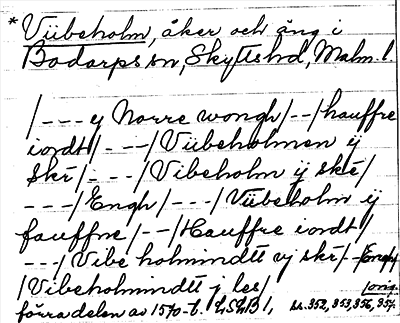 * Viibeholm, åker och äng i
Bodarps sn, Skytts hd, Malm. l.
/--- ÿ Norre wongh/--/hauffre
iordt/---/Viibeholmen ÿ
Skr/---/Vibeholm ÿ skæ/
---/Engh/---/Viibeholm ÿ
fauffne/--/Hauffre iordt/
---/Vibe holmindtt ÿ skr/--/Engh/
/Vibeholmindtt ÿ les/ /orig.
förra delen av 1570-t. LSLB1, ss. 352, 353, 356, 357.